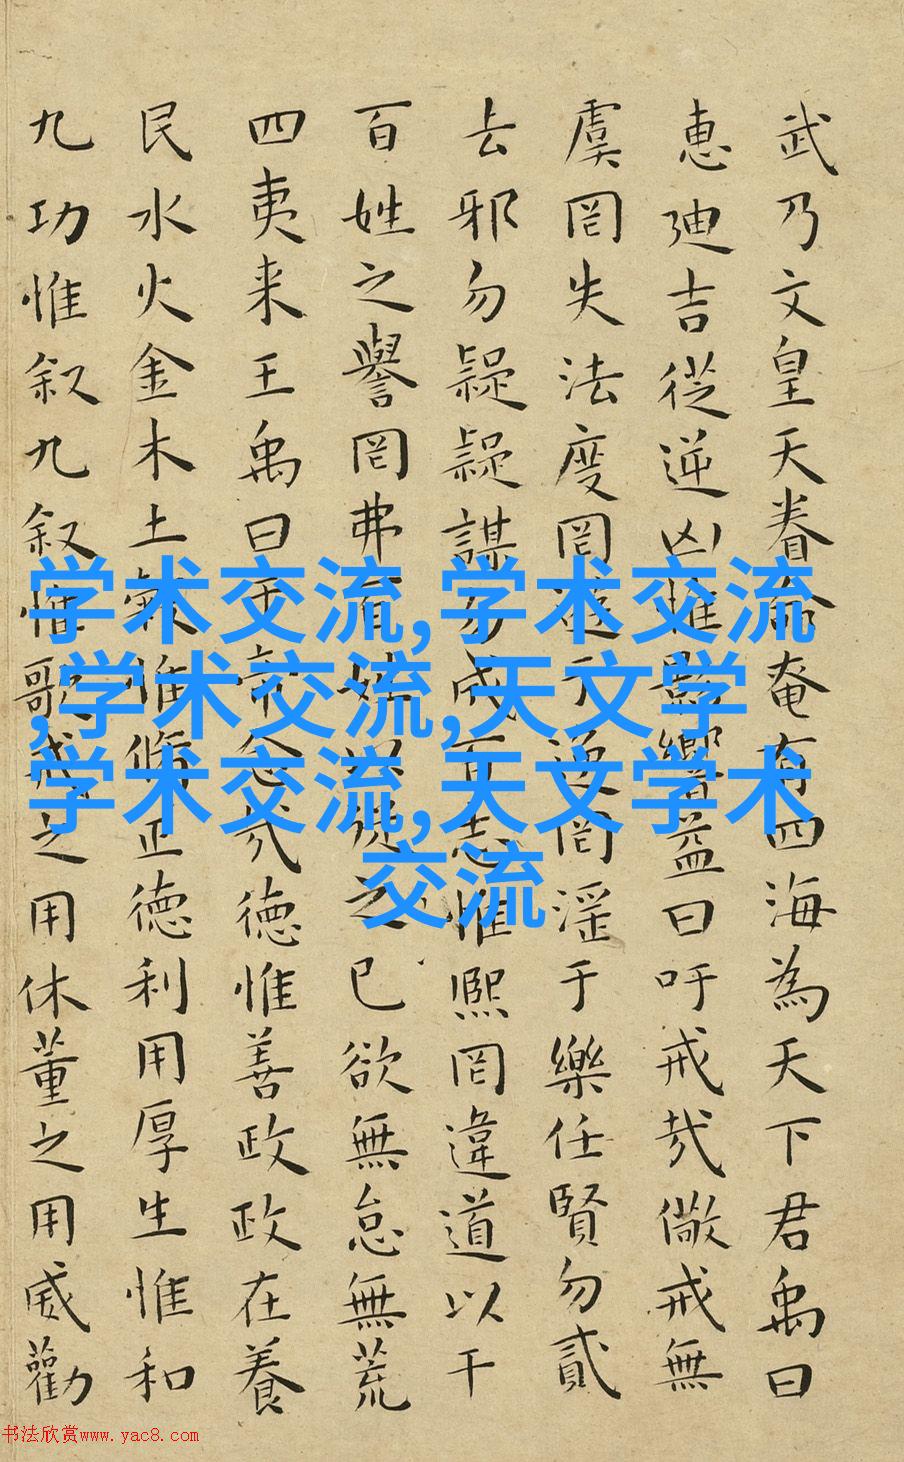 武乃文皇天眷命奄有四海為天下君禹曰
惠迪吉從逆凶惟影響益曰吁戒哉儆戒無
虞罔失法度罔遊于逸罔淫于樂任賢勿貳
去邪勿疑疑謀勿成百志惟熙罔違道以干
百姓之譽罔弗百姓以從之已欲無怠無荒
四夷来王禹曰帝念哉德惟善政政在養
民水火金木土穀惟脩正德利用厚生惟和
九功惟叙九叙惟歌戒之用休董之用威勸
学术交流,学术交流
,学术交流,天文学
学术交流,天文学术
交流
书法欣赏www.yac8.com